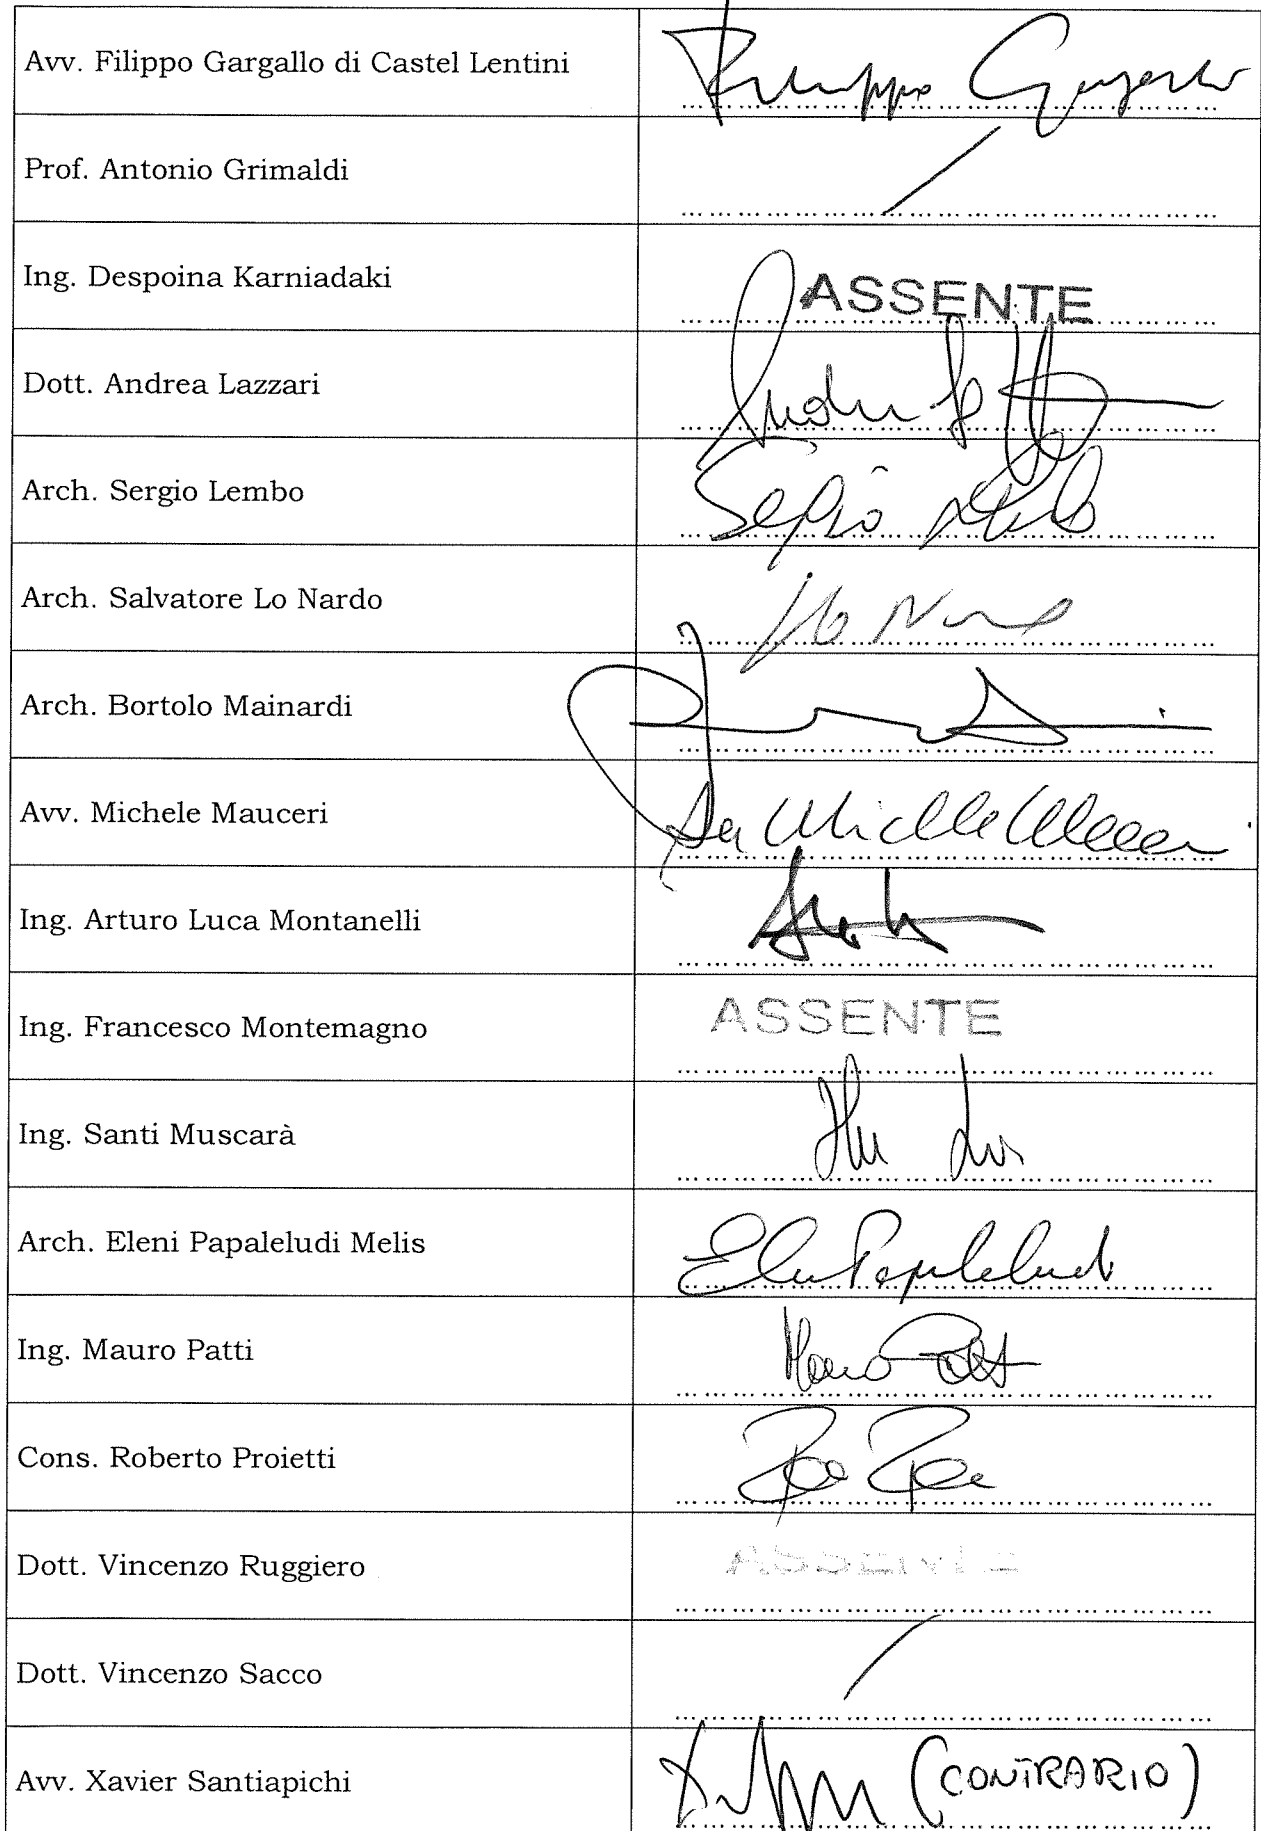 Avv. Filippo Gargallo di Castel Lentini Filippo Gargallo
Prof. Antonio Grimaldi
Ing. Despoina Karniadaki ASSENTE
Dott. Andrea Lazzari
Arch. Sergio Lembo Sergio Lembo
Arch. Salvatore Lo Nardo Lo Nardo
Arch. Bortolo Mainardi
Avv. Michele Mauceri Michele Mauceri
Ing. Arturo Luca Montanelli
Ing. Francesco Montemagno ASSENTE
Ing. Santi Muscarà
Arch. Eleni Papaleludi Melis Eleni Papaleludi
Ing. Mauro Patti Mauro Patti
Cons. Roberto Proietti
Dott. Vincenzo Ruggiero ASSENTE
Dott. Vincenzo Sacco
Avv. Xavier Santiapichi (CONTRARIO)